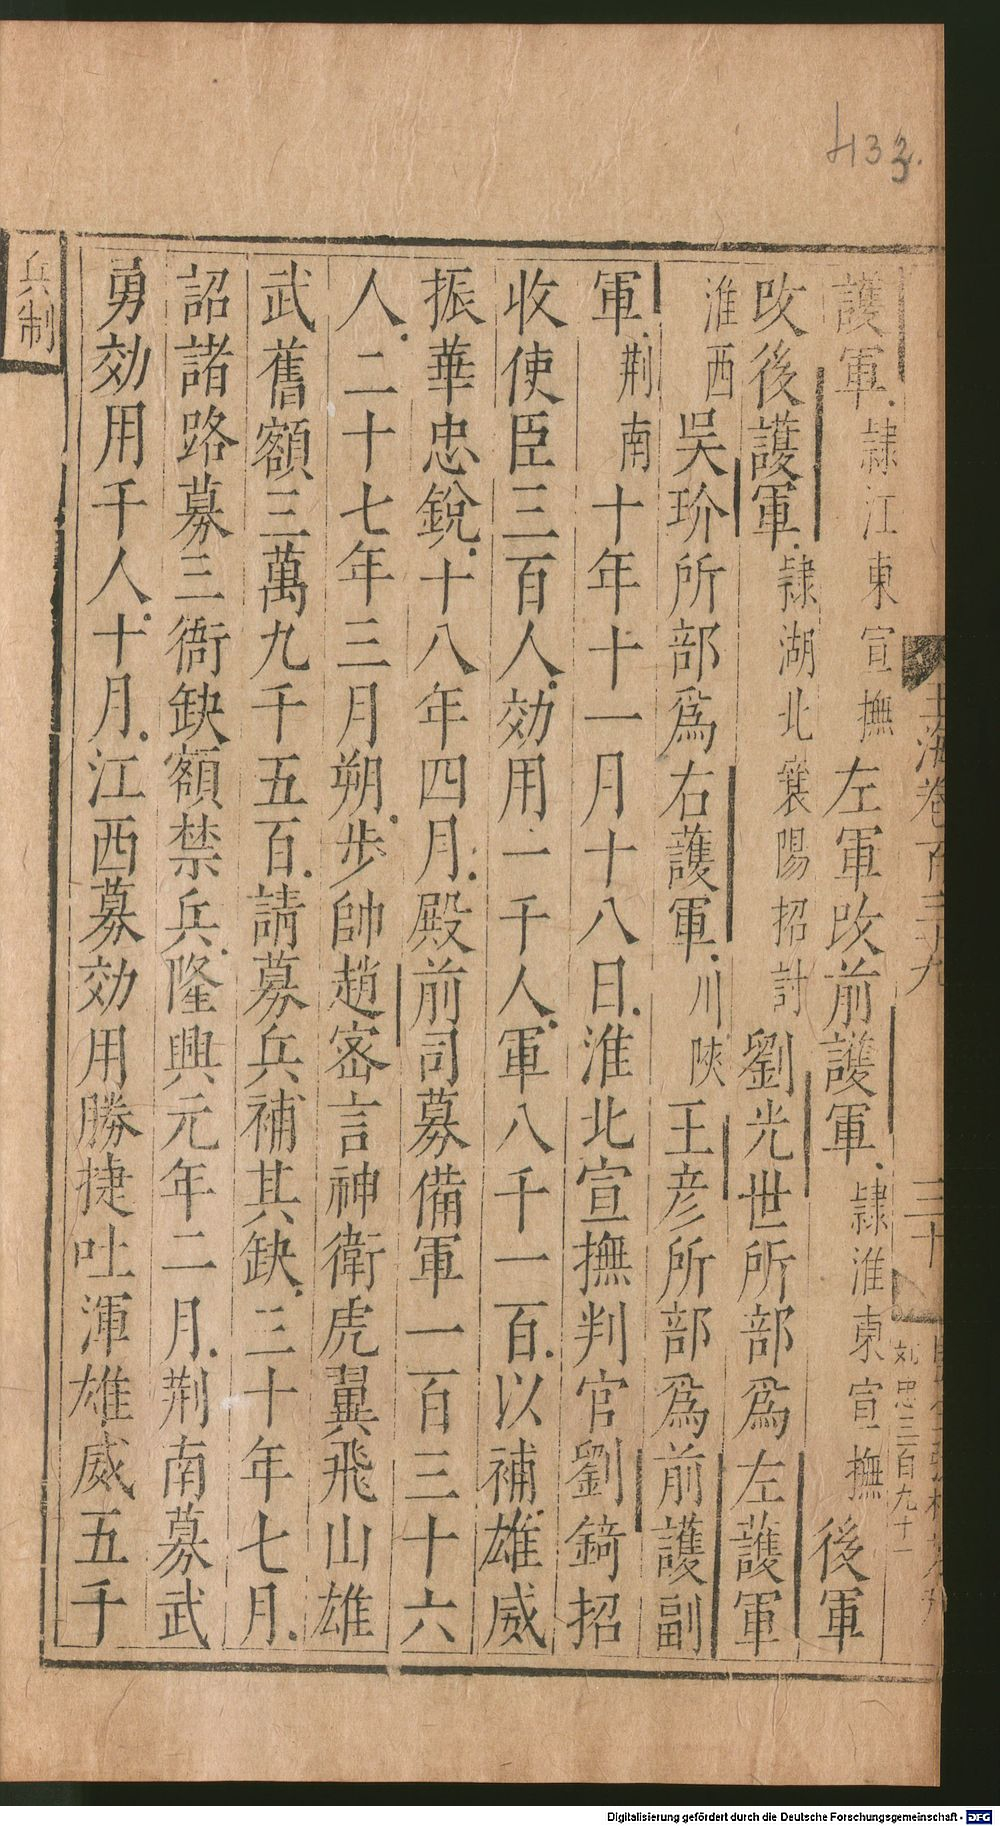 433.
玉海卷百三十九
三十
刘思三百九十一
護軍隷江東宣撫左軍改前護軍隷淮東宣撫後軍
改後護軍隷湖北襄陽招討劉光世所部為左護軍
淮西吳玠所部爲右護軍川陝王彦所部爲前護副
軍荆南十年十一月十八日淮北宣撫判官劉錡招
收使臣三百人効用一千人軍八千一百以補雄威
振華忠銳十八年四月殿前司募備軍一百三十六
人二十七年三月朔步帥趙密言神衛虎翼飛山雄
武舊額三萬九千五百請募兵補其缺三十年七月
詔諸路募三衙缺額禁兵隆興元年二月荆南募武
勇効用千人十月江西募効用勝捷吐渾雄威五千
兵制
Digitalisierung gefördert durch die Deutsche Forschungsgemeinschaft - DFG